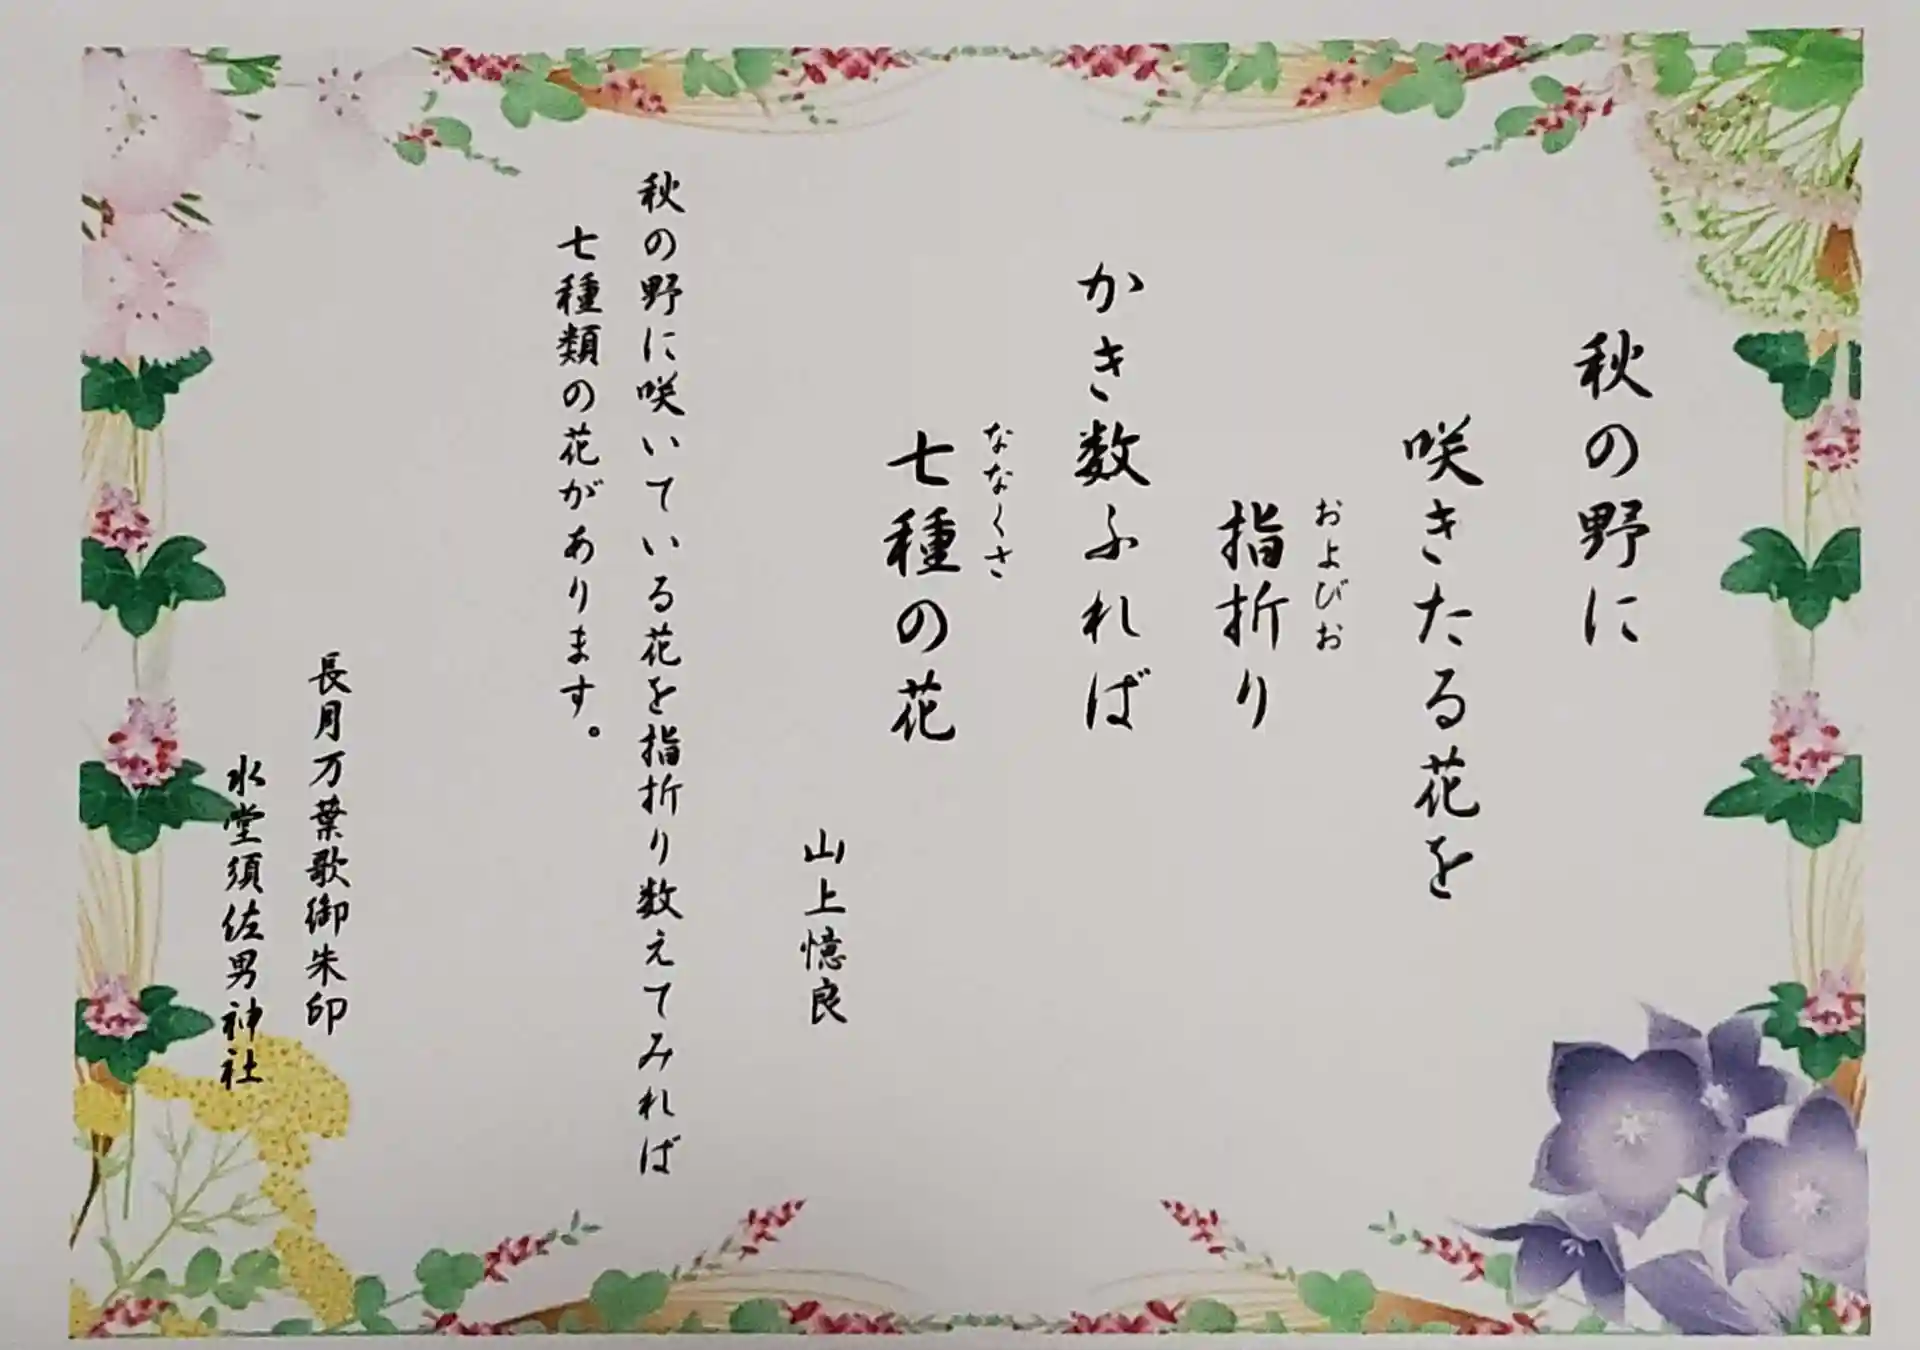 秋の野に
咲きたる花を
およびお
指折り
かき数ふれば
ななくさ
七種の花
山上憶良
秋の野に咲いている花を指折り数えてみれば
七種類の花があります。
長月万葉歌御朱印
水堂須佐男神社